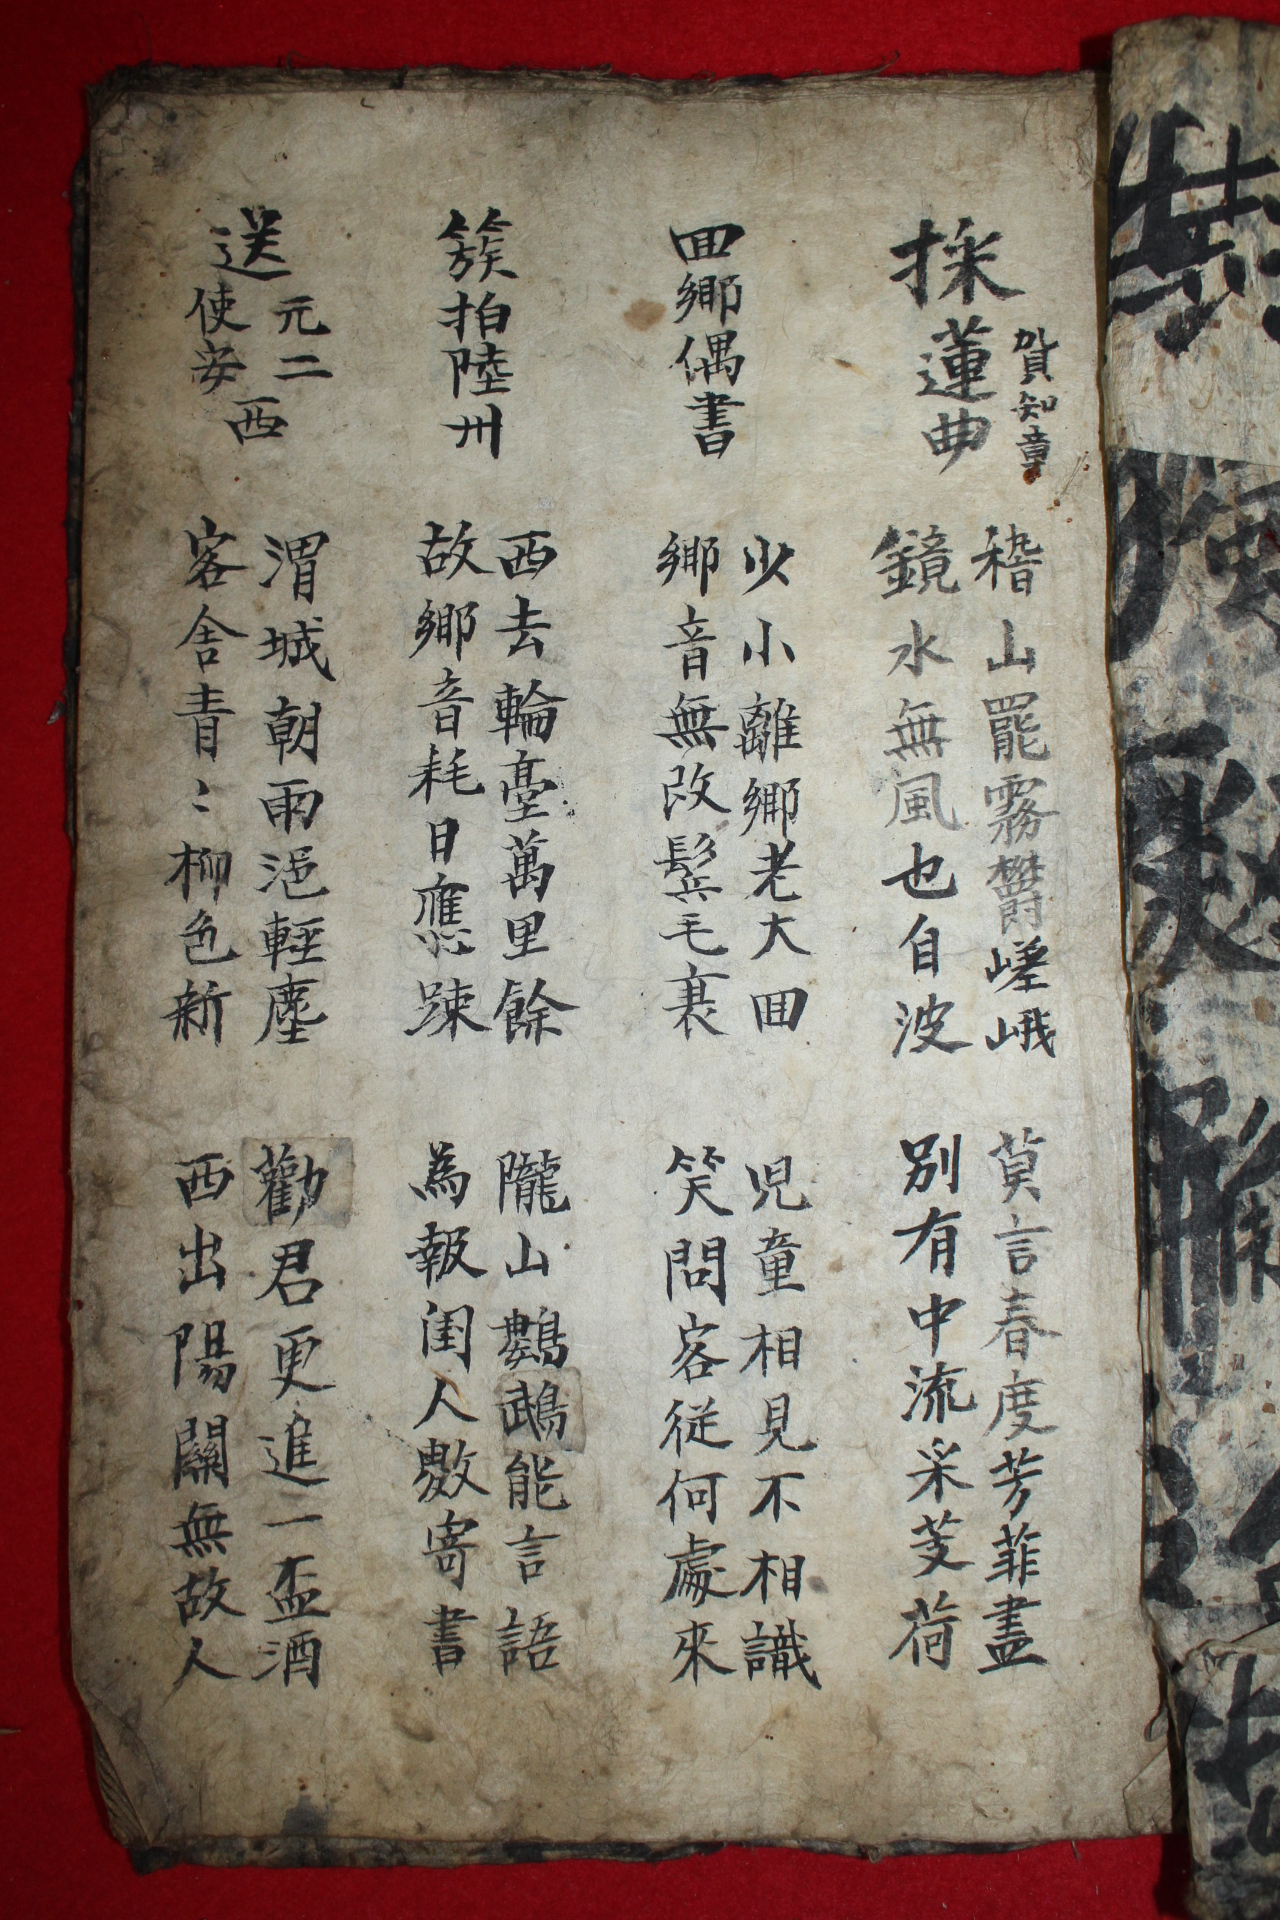 採蓮曲
賀知章
稽山罷霧欝嵯峨
鏡水無風也自波
莫言春度芳菲盡
別有中流采芰荷
囬鄉偶書
少小離鄉老大囬
鄉音無改鬂毛衰
児童相見不相識
笑問客從何處來
簇拍陸州
西去輪臺萬里餘
故鄉音耗日應踈
隴山鸚鵡能言語
為報閨人數寄書
送元二使安西
渭城朝雨浥輕塵
客舍青〻柳色新
勸君更進一盃酒
西出陽關無故人